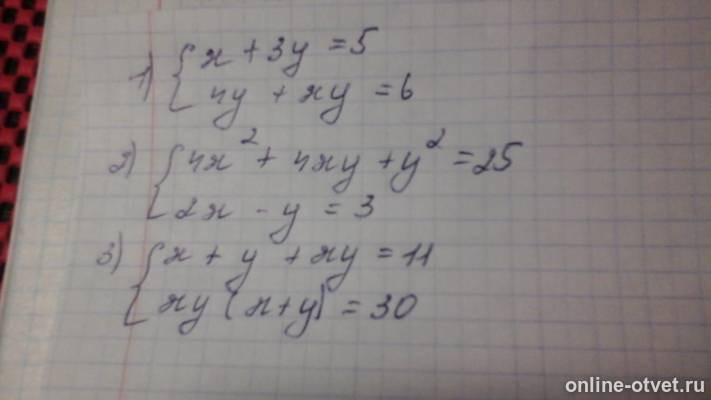 1) { x + 3y = 5
4y + xy = 6
2) { 4x² + 4xy + y² = 25
2x - y = 3
3) { x + y + xy = 11
xy (x+y) = 30
online-otvet.ru